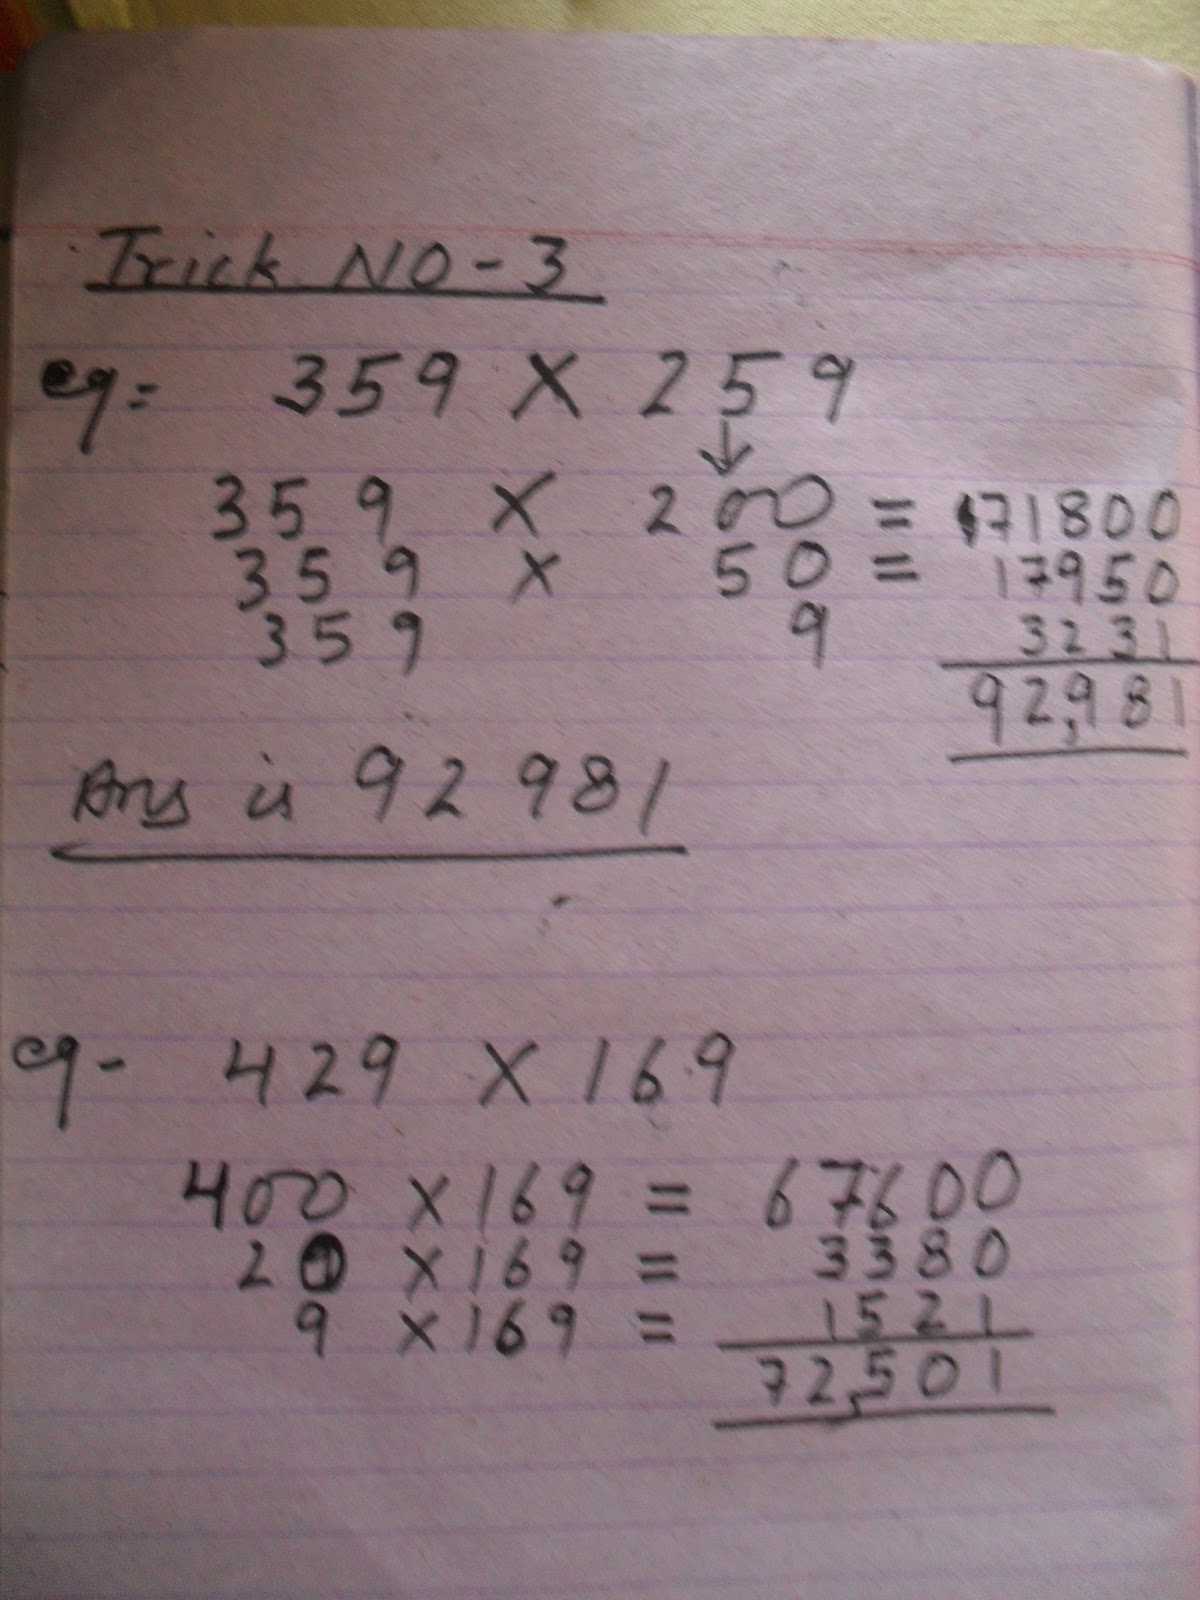 Trick NO-3
eg= 359 X 259
↓
359 X 200 = 71800
359 x 50 = 17950
359 9 3231
92,981
Ans is 92 981
eg- 429 X 169
400 X 169 = 67600
20 X 169 = 3380
9 X 169 = 1521
72,501